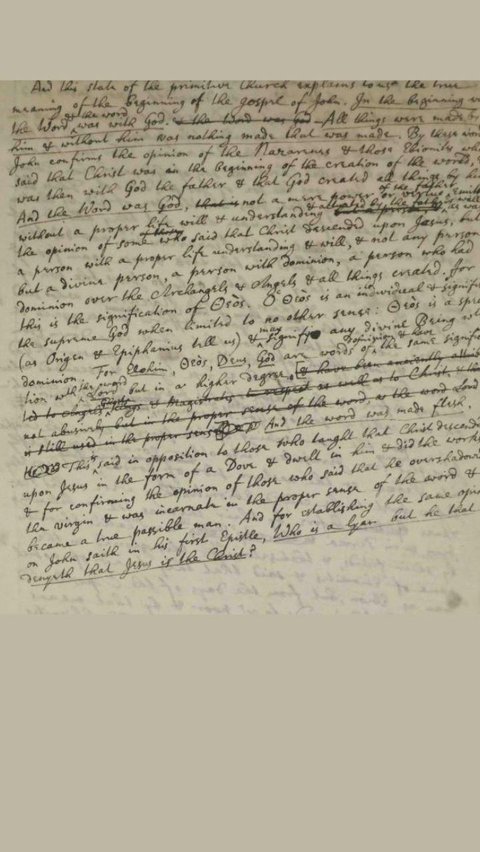 And this state of the primitive Church explains to us the true
meaning of the beginning of the Gospel of John. In the beginning was
the Word & the word was with God. & the word was God All things were made by
him & without him was nothing made that was made. By these words
John confirms the opinion of the Nazarenes & those Ebionites who
said that Christ was in the beginning of the creation of the world,
was then with God the father & that God created all things by him
And the Word was God, that is not a mere power or virtue of the father
without a proper life will & understanding
the opinion of some who said that Christ descended upon Jesus, but
a person with a proper life understanding & will, & not any person
but a divine person, a person with dominion, a person who had
dominion over the Archangels & Angels & all things created. For
this is the signification of Θεός. Ὁ Θεὸς is an individual & signifies
the supreme God when limited to no other sense: Θεὸς is a
(as Origen & Epiphanius tell us) & may signify any divine Being with
dominion. For Elohim, Θεὸς, Deus, God are words of dominion & have the same significa
tion with the word Lord but in a higher degree, & have been anciently
to Angels Kings & Magistrates as well as to Christ, &
not abusively but in the proper sense of the word, as the word Lord
is still used in the proper sense And the word was made flesh.
This said in opposition to those who taught that Christ descended
upon Jesus in the form of a Dove & dwelt in him & did the works
& for confirming the opinion of those who said that he overshadowed
the virgin & was incarnate in the proper sense of the word &
became a true passible man. And for establishing the same opinion
on John saith in his first Epistle, Who is a lyar but he that
denyeth that Jesus is the Christ?